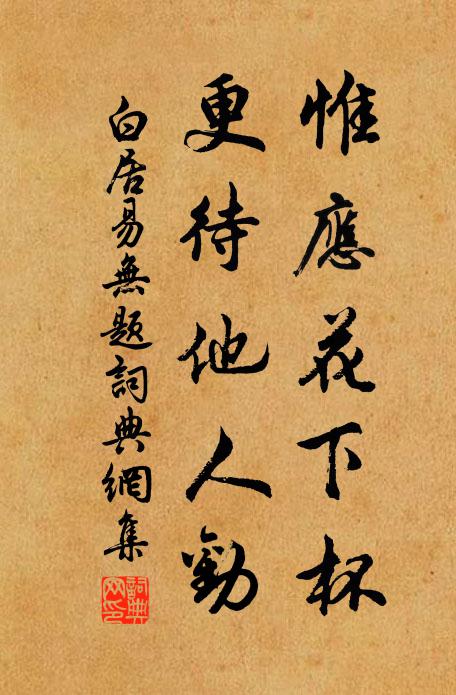 惟應花下杯
更待他人勸
白居易無題詞典網集
詞典
网印